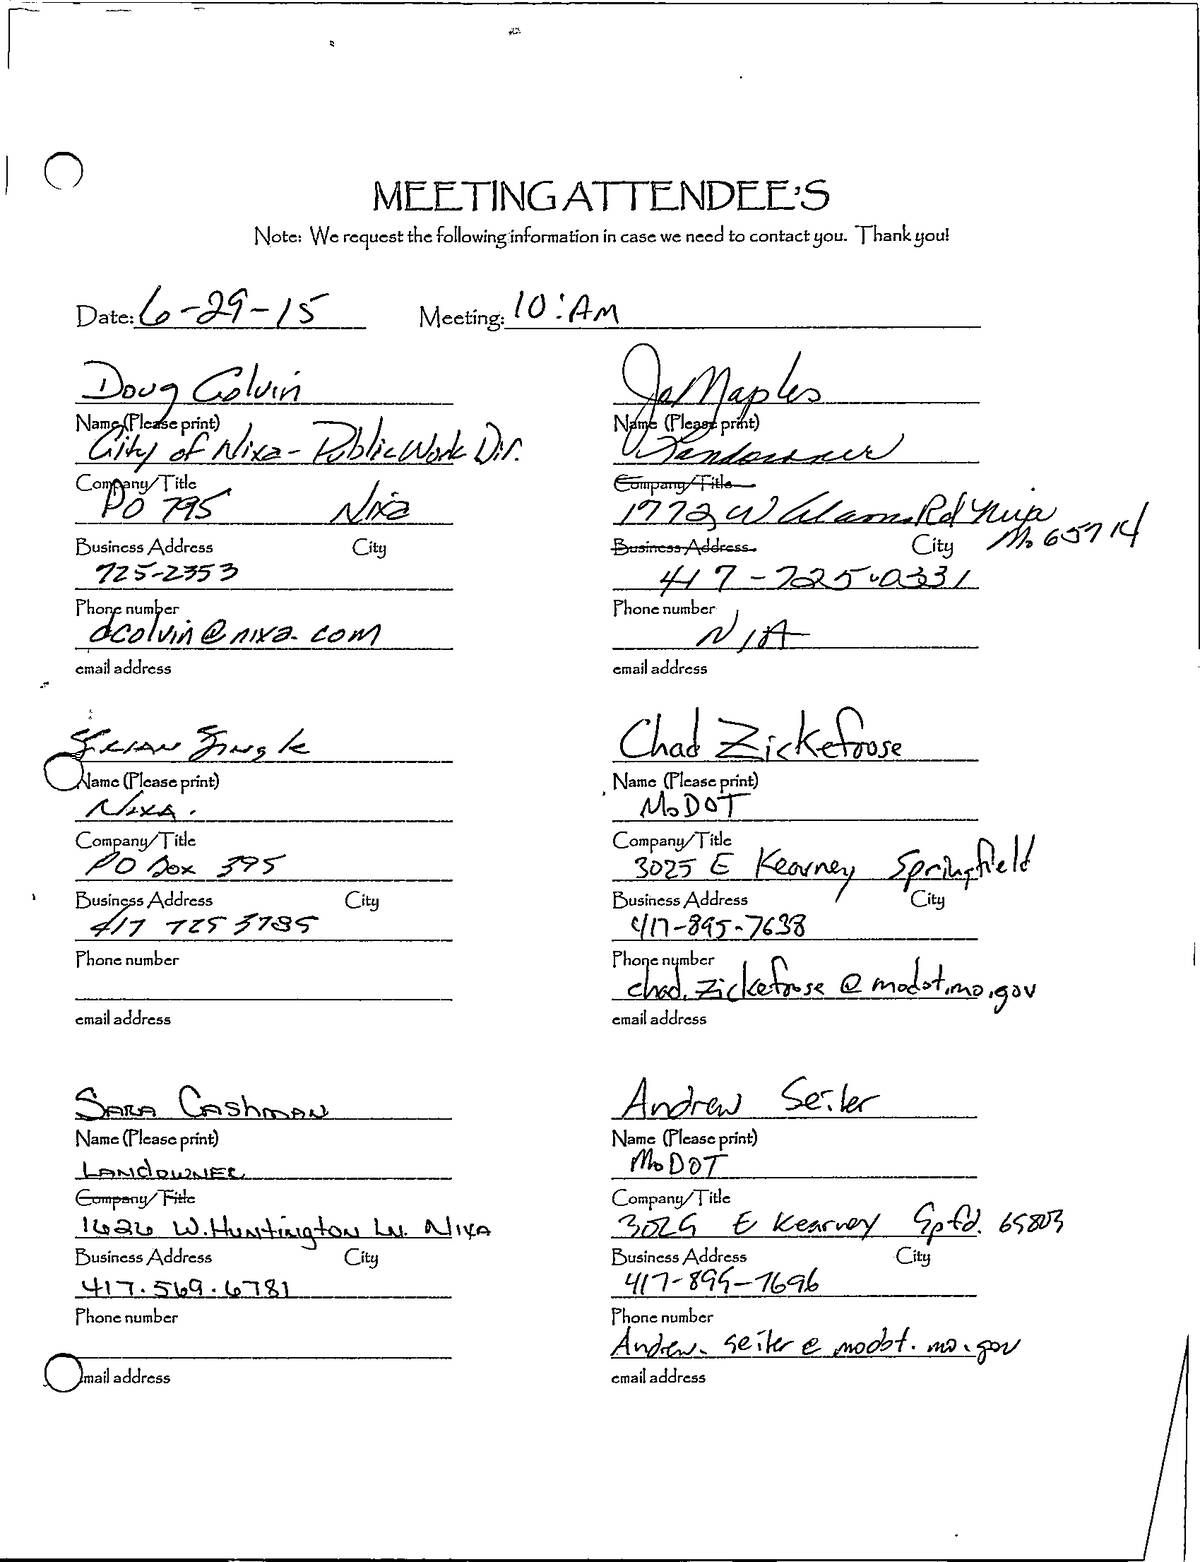 MEETING ATTENDEE'S
Note: We request the following information in case we need to contact you. Thank you!
Date: 6-29-15 Meeting: 10:AM
Doug Colvin
Name (Please print)
City of Nixa - Public Work Dir.
Company/Title
PO 795 Nixa
Business Address City
725-2353
Phone number
dcolvin@nixa.com
email address
Jo Maples
Name (Please print)
Landowner
Company/Title
1772 W Rd Nixa
Mo 65714
Business Address City
417-725-0331
Phone number
N/A
email address
Name (Please print)
Nixa.
Company/Title
PO Box 395
Business Address City
417 725 3785
Phone number
email address
Chad Zickefoose
Name (Please print)
MoDOT
Company/Title
3025 E Kearney Springfield
Business Address City
417-895-7638
Phone number
chad.zickefoose@modot.mo.gov
email address
Sara Cashman
Name (Please print)
Landowner
Company/Title
1626 W. Huntington Ln. Nixa
Business Address City
417.569.6781
Phone number
mail address
Andrew Seiler
Name (Please print)
MoDOT
Company/Title
3025 E Kearney Spfd. 65803
Business Address City
417-895-7696
Phone number
Andrew.seiler@modot.mo.gov
email address